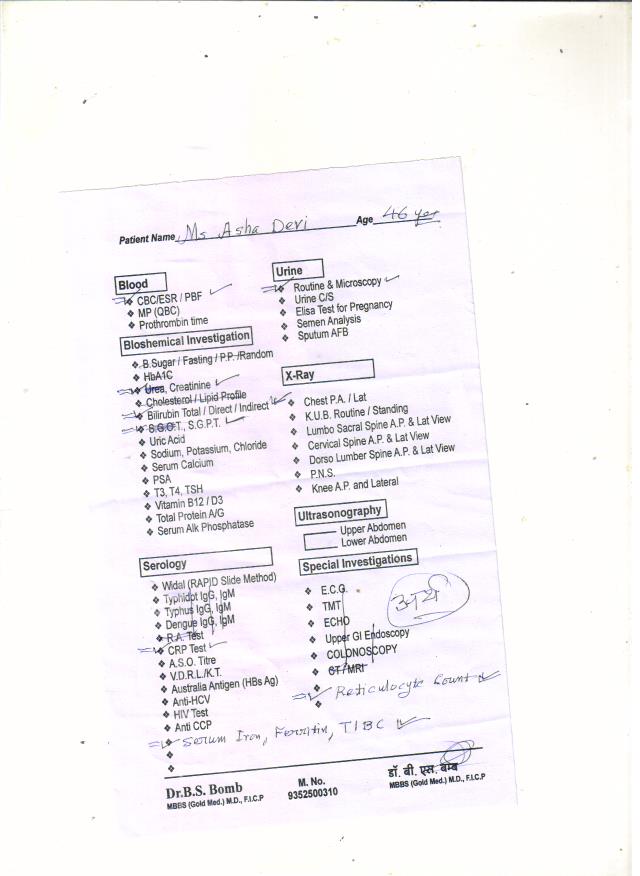 Patient Name Ms Asha Devi Age 46 yer
Blood
❖ CBC/ESR / PBF ✓
❖ MP (QBC)
❖ Prothrombin time
Bloshemical Investigation
❖ B.Sugar / Fasting / P.P. /Random
❖ HbA1C
❖ Urea, Creatinine ✓
❖ Cholesterol / Lipid Profile
❖ Bilirubin Total / Direct / Indirect ✓
❖ S.G.O.T., S.G.P.T. ✓
❖ Uric Acid
❖ Sodium, Potassium, Chloride
❖ Serum Calcium
❖ PSA
❖ T3, T4, TSH
❖ Vitamin B12 / D3
❖ Total Protein A/G
❖ Serum Alk Phosphatase
Serology
❖ Widal (RAPID Slide Method)
❖ Typhidot IgG, IgM
❖ Typhus IgG, IgM
❖ Dengue IgG, IgM
❖ R.A. Test
❖ CRP Test ✓
❖ A.S.O. Titre
❖ V.D.R.L./K.T.
❖ Australia Antigen (HBs Ag)
❖ Anti-HCV
❖ HIV Test
❖ Anti CCP
❖ Serum Iron, Ferritin, TIBC ✓
Urine
❖ Routine & Microscopy ✓
❖ Urine C/S
❖ Elisa Test for Pregnancy
❖ Semen Analysis
❖ Sputum AFB
X-Ray
❖ Chest P.A. / Lat
❖ K.U.B. Routine / Standing
❖ Lumbo Sacral Spine A.P. & Lat View
❖ Cervical Spine A.P. & Lat View
❖ Dorso Lumber Spine A.P. & Lat View
❖ P.N.S.
❖ Knee A.P. and Lateral
Ultrasonography
Upper Abdomen
Lower Abdomen
Special Investigations
❖ E.C.G.
❖ TMT
❖ ECHO
❖ Upper GI Endoscopy
❖ COLONOSCOPY
❖ CT / MRI
❖ Reticulocyte Count ✓
Dr.B.S. Bomb
MBBS (Gold Med.) M.D., F.I.C.P
M. No.
9352500310
डॉ. बी. एस. बम्ब
MBBS (Gold Med.) M.D., F.I.C.P